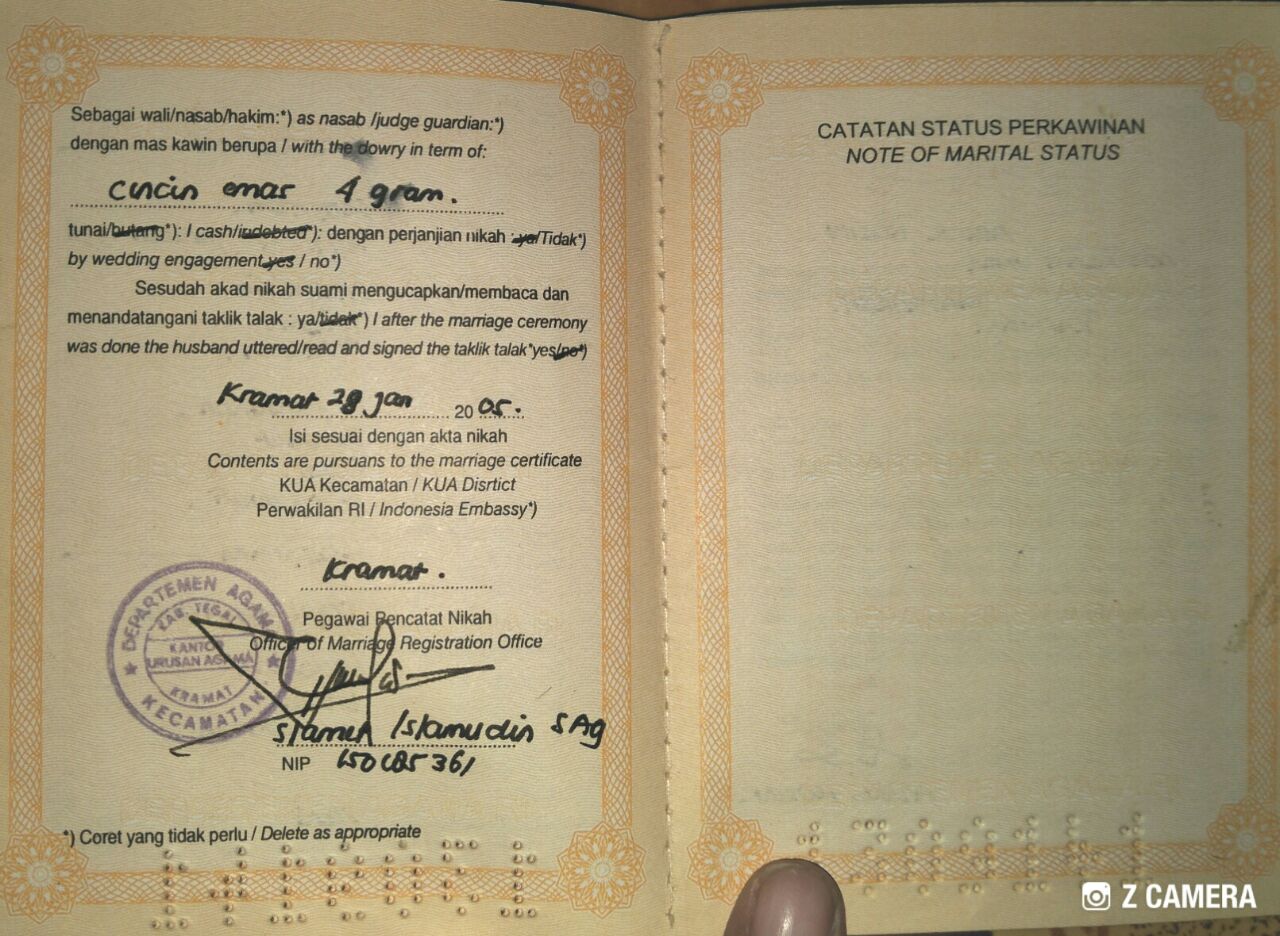 Sebagai wali/nasab/hakim:*) as nasab /judge guardian:*)
dengan mas kawin berupa / with the dowry in term of:
Cincin emas 4 gram.
tunai/butang*): / cash/indebted*): dengan perjanjian nikah : ya/Tidak*)
by wedding engagement yes / no*)
Sesudah akad nikah suami mengucapkan/membaca dan
menandatangani taklik talak : ya/tidak*) / after the marriage ceremony
was done the husband uttered/read and signed the taklik talak*yes/no*)
Kramat 28 Jan 2005.
Isi sesuai dengan akta nikah
Contents are pursuans to the marriage certificate
KUA Kecamatan / KUA Disrtict
Perwakilan RI / Indonesia Embassy*)
Kramat.
Pegawai Pencatat Nikah
Officer of Marriage Registration Office
DEPARTEMEN AGAMA
KAB. TEGAL
KANTOR
URUSAN AGAMA
KRAMAT
KECAMATAN
Slamet Islamudin SAg
NIP
*) Coret yang tidak perlu / Delete as appropriate
CATATAN STATUS PERKAWINAN
NOTE OF MARITAL STATUS
Z CAMERA